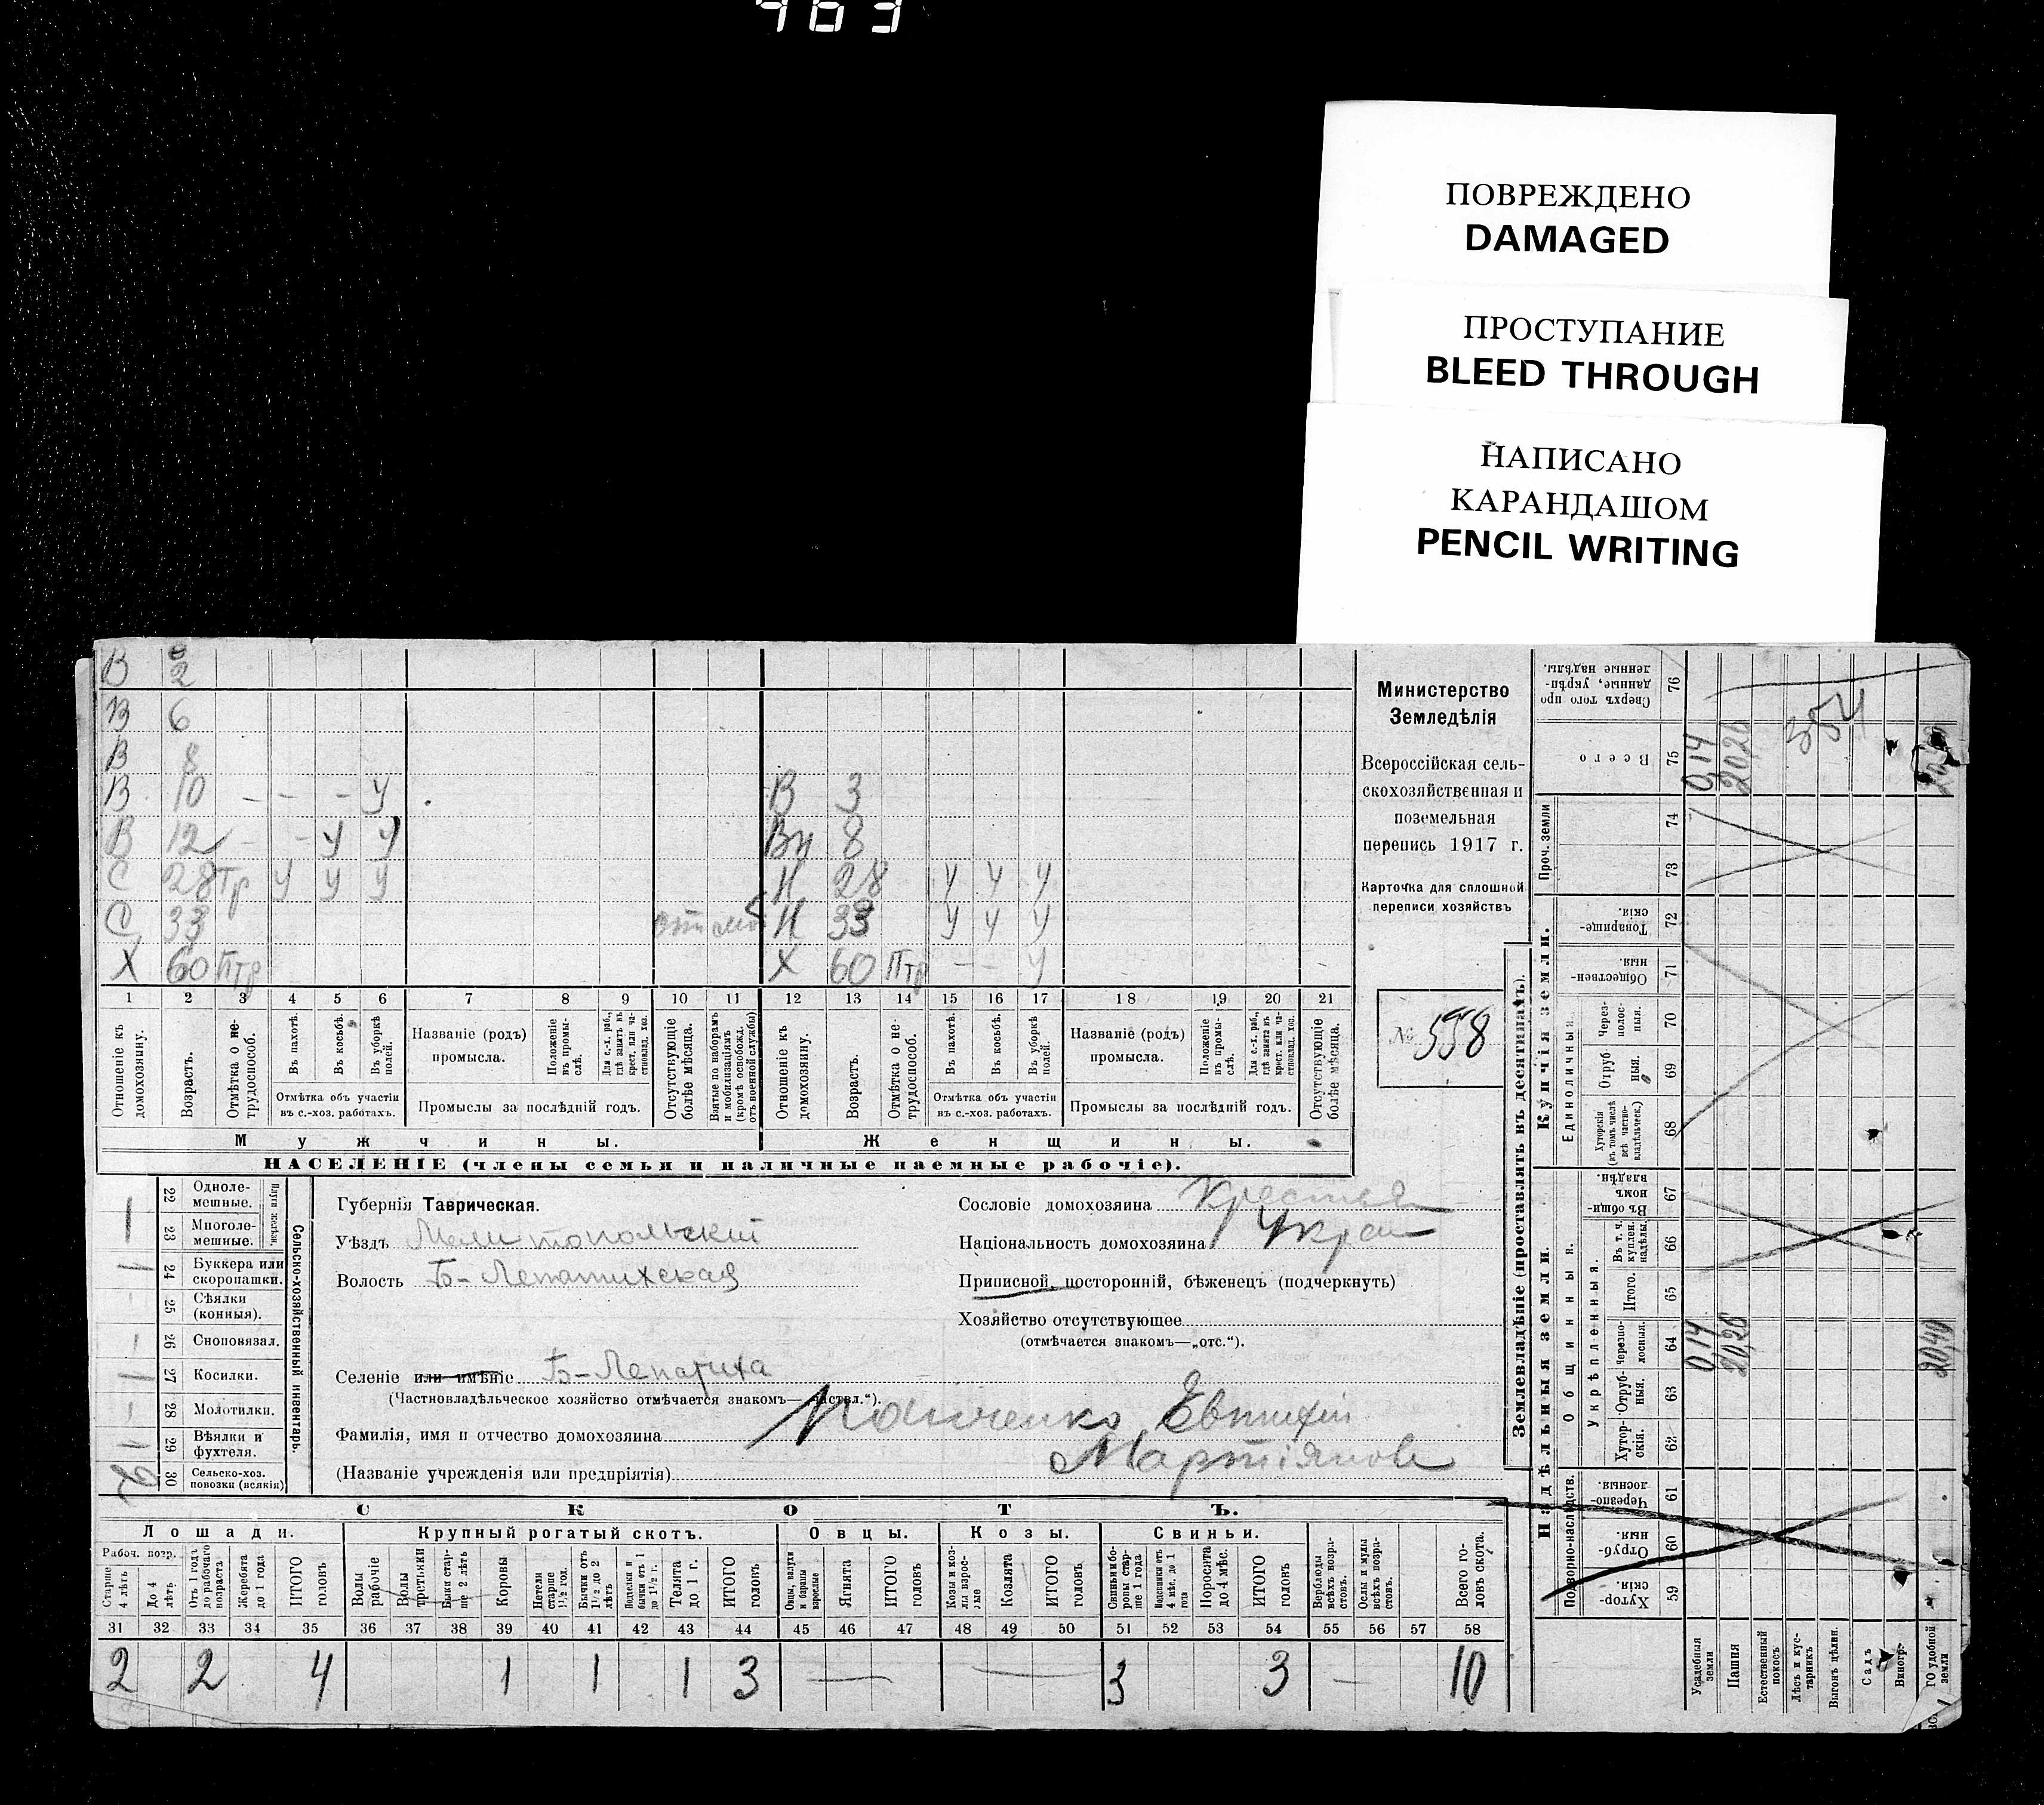 463
ПОВРЕЖДЕНО
DAMAGED
ПРОСТУПАНИЕ
BLEED THROUGH
НАПИСАНО
КАРАНДАШОМ
PENCIL WRITING
В 2
В 6
В 8
В 10 - - - У В 3
В 12 - - У У Вн 8
С 28 Тр У У У Н 28 У У У
С 33 Н 33 У У У
Х 60 Птр Х 60 Птр - - У
1 2 3 4 5 6 7 8 9 10 11 12 13 14 15 16 17 18 19 20 21
Отношеніе къ домохозяину.
Возрастъ.
Отмѣтка о нетрудоспособ.
Въ пахотѣ.
Въ косьбѣ.
Въ уборкѣ полей.
Отмѣтка объ участіи въ с.-хоз. работахъ.
Названіе (родъ) промысла.
Положеніе въ промыслѣ.
Для с.-х. раб., гдѣ занятъ въ крест. или частновлад. хоз.
Промыслы за послѣдній годъ.
Отсутствующіе болѣе мѣсяца.
Взятые по наборамъ и мобилизаціямъ (кромѣ освобожд. отъ военной службы)
Отношеніе къ домохозяину.
Возрастъ.
Отмѣтка о нетрудоспособ.
Въ пахотѣ.
Въ косьбѣ.
Въ уборкѣ полей.
Отмѣтка объ участіи въ с.-хоз. работахъ.
Названіе (родъ) промысла.
Положеніе въ промыслѣ.
Для с.-х. раб., гдѣ занята въ крест. или частновлад. хоз.
Промыслы за послѣдній годъ.
Отсутствующіе болѣе мѣсяца.
Мужчины. Женщины.
НАСЕЛЕНІЕ (члены семьи и наличные наемные рабочіе).
Министерство
Земледѣлія
Всероссійская сель-
скохозяйственная и
поземельная
перепись 1917 г.
Карточка для сплошной
переписи хозяйствъ
№ 558
Сельско-хозяйственный инвентарь.
Плуги желѣзн.
22 Однолемешные.
23 Многолемешные.
24 Буккера или скоропашки.
25 Сѣялки (конныя).
26 Сноповязал.
27 Косилки.
28 Молотилки.
29 Вѣялки и фухтеля.
30 Сельско-хоз. повозки (всякія)
Губернія Таврическая.
Уѣздъ Мелитопольскій
Волость Б-Лепатихская
Селеніе или имѣніе Б-Лепатиха
(Частновладѣльческое хозяйство отмѣчается знакомъ—„частвл.“).
Фамилія, имя и отчество домохозяина Евтихій
Мартіянов
(Названіе учрежденія или предпріятія)
Сословіе домохозяина Крестьян
Національность домохозяина Укра
Приписной, посторонній, бѣженецъ (подчеркнуть)
Хозяйство отсутствующее
(отмѣчается знакомъ—„отс.“).
СКОТЪ.
Лошади. Крупный рогатый скотъ. Овцы. Козы. Свиньи.
Рабоч. возр.
Старше 4 лѣтъ
До 4 лѣтъ
Отъ 1 года до рабочаго возраста
Жеребята до 1 года
ИТОГО головъ
Волы рабочіе
Волы третьяки
Быки старше 2 лѣтъ
Коровы
Нетели старше 1½ год.
Бычки отъ 1½ до 2 лѣтъ
Подтелки и бычки отъ 1 до 1½ г.
Телята до 1 г.
ИТОГО головъ
Овцы, валухи и бараны взрослые
Ягнята
ИТОГО головъ
Козы и козлы взрослые
Козлята
ИТОГО головъ
Свиньи и боровы старше 1 года
Подсвинки отъ 4 мѣс. до 1 года
Поросята до 4 мѣс.
ИТОГО головъ
Верблюды всѣхъ возрастовъ.
Ослы и мулы всѣхъ возрастовъ.
Всего головъ скота.
31 32 33 34 35 36 37 38 39 40 41 42 43 44 45 46 47 48 49 50 51 52 53 54 55 56 57 58
2 2 4 1 1 1 3 — — 3 3 — 10
Землевладѣніе (проставлять въ десятинахъ).
Надѣльныя земли. Купчія земли.
Подворно-наслѣдств.
Общинныя.
Укрѣпленныя.
Единоличныя.
Проч. земли
Хуторскія. 59
Отрубныя 60
Черезполосныя. 61
Хуторскія. 62
Отрубныя. 63
Черезполосныя. 64
Итого. 65
Въ т. ч. куплен. надѣлы. 66
Въ общинномъ владѣн. 67
Хуторскія (въ томъ числѣ всѣ частновладѣльческ.) 68
Отрубныя. 69
Черезполосныя. 70
Общественныя. 71
Товарищескія. 72
73 74
Всего 75
Сверхъ того проданные, укрѣпленные надѣлы. 76
Усадебныя земли 0,14 0,14
Пашня 20,26 20,26
Естественный покосъ
Лѣсъ и кустарникъ
Выгонъ цѣлин.
Садъ
Виногр.
ГО удобной земли 20,40
354